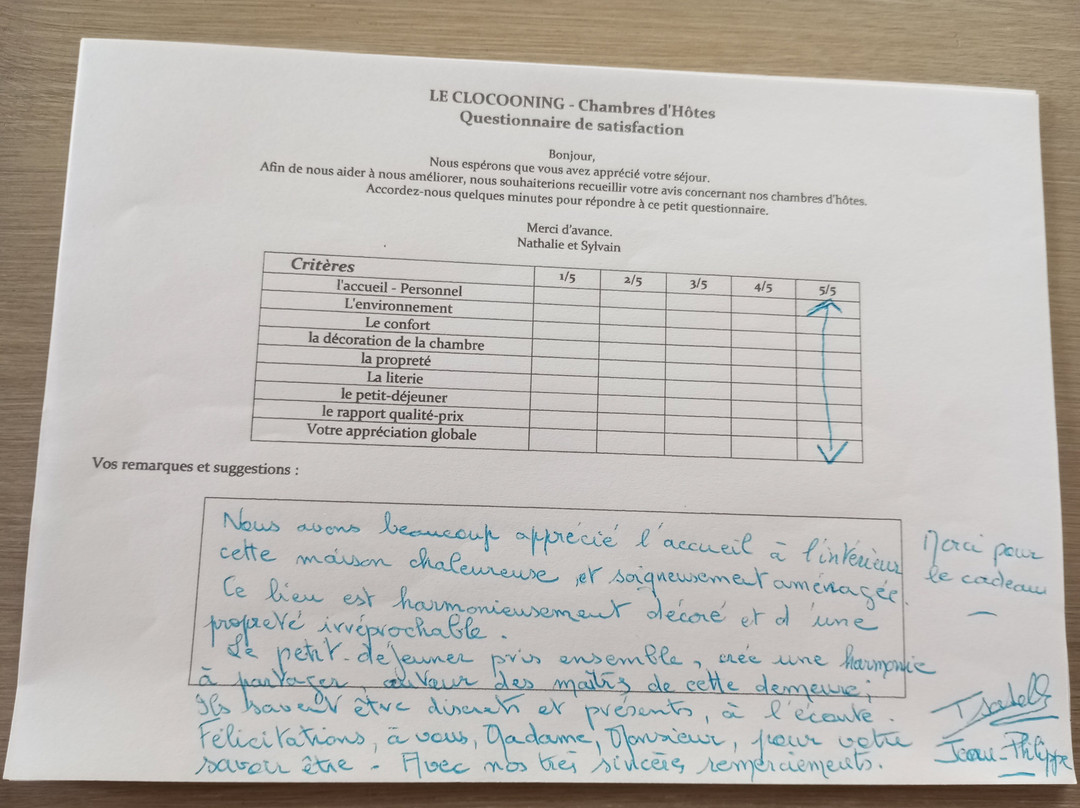 LE CLOCOONING - Chambres d'Hôtes
Questionnaire de satisfaction
Bonjour,
Nous espérons que vous avez apprécié votre séjour.
Afin de nous aider à nous améliorer, nous souhaiterions recueillir votre avis concernant nos chambres d'hôtes.
Accordez-nous quelques minutes pour répondre à ce petit questionnaire.
Merci d'avance.
Nathalie et Sylvain
Critères 1/5 2/5 3/5 4/5 5/5
l'accueil - Personnel
L'environnement
Le confort
la décoration de la chambre
la propreté
La literie
le petit-déjeuner
le rapport qualité-prix
Votre appréciation globale
Vos remarques et suggestions :
Nous avons beaucoup apprécié l'accueil à l'intérieur
cette maison chaleureuse, et soigneusement aménagée.
Ce lieu est harmonieusement décoré et d'une
propreté irréprochable.
Le petit-déjeuner pris ensemble, crée une harmonie
à partager autour des maîtres de cette demeure;
Ils savent être discrets et présents, à l'écoute.
Félicitations, à vous, Madame, Monsieur, pour votre
savoir être - Avec nos très sincères remerciements.
Merci pour
le cadeau
Isabelle
Jean-Philippe